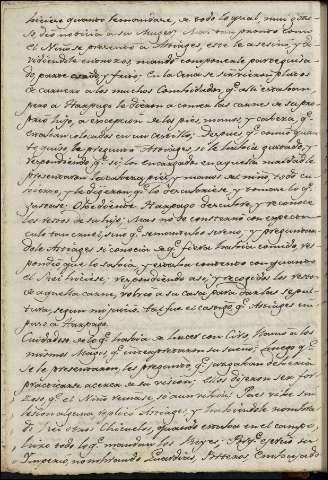 hiciese quando se mandare, a todo lo qual, muy gusto
so, dio noticia a su Muger. Mas tan pronto como
el Niño se presentó a Astiages, este le asesinó, y di
vidiendole en trozos, mandó componerle parte guisa
do parte asado, y frito. En la Cena se sirvieron platos
de carnero a los muchos Combidados, q.e alli estaban,
pero a Harpago le dieron a comer las carnes de su pro
prio hijo, a excepcion de los pies, manos, y cabeza, q.e
estaban colocadas en un cestillo; despues q.e comió quan
to quiso le preguntó Astiages, si le habia gustado, y
respondiendo q.e si, los encargados en aquella maldad le
presentaron la cabeza, pies, y manos de el niño todo cu
vierto, y le dijeron q.e lo descubriese, y tomase lo q.e
gustase. Obedeciendo Harpago descubre, y reconoce
los restos de su hijo, Mas no se consternó con espectá
culo tan cruel, sino q.e se mantubo sereno, y preguntan
dole Astiages si conocia de q.e fiera habia comido, res
pondió que lo sabia, y estaba contento con quanto
el Rei hiciese; respondiendo asi, y recogidos los restos
de aquella carne, volvio a su Casa para darlas sepul
tura, segun mi juicio. tal fue el castigo q.e Astiages im
puso a Harpago.
Cuidadoso de lo q.e habia de hacer con Ciro, llamó a los
mismos Magos, q.e interpretaron su sueño; luego q.e
se le presentaron, les preguntó q.e juzgaban deberia
practicarse acerca de su vision; Ellos dijeron ser for
zoso q.e el Niño reinase, si aun vivia. Pues vive sin
lesion alguna, replicó Astiages, y habiendole nombra
do Rei otros Chicuelos, quando estaba en el campo,
hizo todo lo q.e mandan los Reyes; Pues q.e exerció su
Imperio, nombrando Guardias, Porteros, Embiados